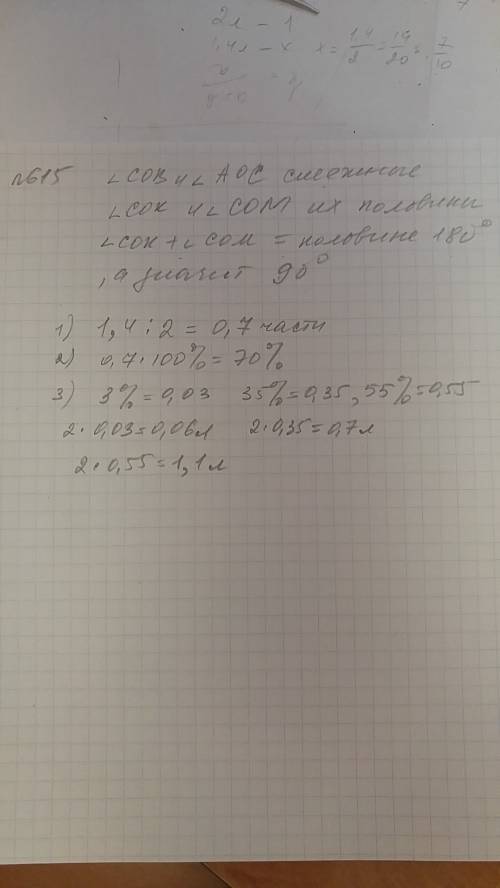 2л - 1
1,4л - x x = 1,4/2 = 14/20 = 7/10
№615 ∠COB и ∠AOC смежные
∠COK и ∠COM их половины
∠COK + ∠COM = половине 180°
, а значит 90°
1) 1,4 : 2 = 0,7 части
2) 0,7 · 100% = 70%
3) 3% = 0,03 35% = 0,35, 55% = 0,55
2 · 0,03 = 0,06л 2 · 0,35 = 0,7л
2 · 0,55 = 1,1л